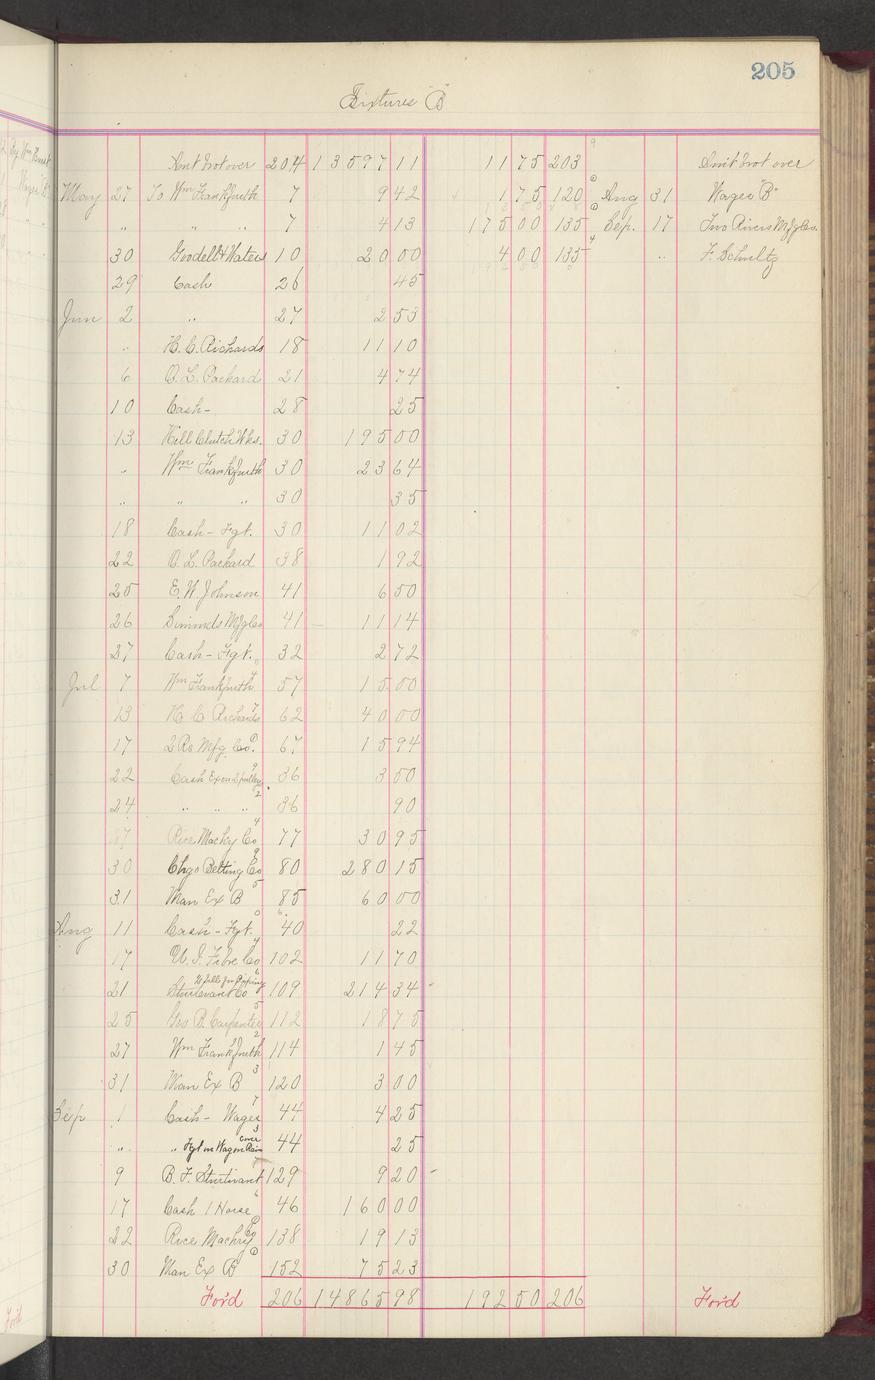 205
Fixtures "B"
Amt brot over 204 13597 11 11 75 203 Amt brot over
May 27 To Wm Frankfurth 7 9 42 1 75 120 Aug 31 Wages "B"
" " " 7 4 13 175 00 135 Sep. 17 Two Rivers Mfg Co.
30 Goodell & Waters 10 20 00 4 00 135 " F. Schultz
29 Cash 26 45
Jun 2 " 27 2 53
" H. C. Richards 18 11 10
6 O. L. Packard 21 4 74
10 Cash - 28 25
13 Hill Clutch Wks. 30 195 00
" Wm Frankfurth 30 23 64
" " " 30 35
18 Cash - Fgt. 30 11 02
22 O. L. Packard 38 1 92
25 E. W. Johnson 41 6 50
26 Simmds Mfg Co 41 11 14
27 Cash - Fgt. 32 2 72
Jul 7 Wm Frankfurth 57 15 00
13 H. C. Richards 62 40 00
17 2 Rs Mfg. Co. 67 15 94
22 Cash Ex on 2 pulleys 36 3 50
24 " " " 36 90
27 Rice Machy Co 77 30 95
30 Chgo Belting Co 80 280 15
31 Man Ex B 85 60 00
Aug 11 Cash - Fgt. 40 22
17 U. I. Fibre Co 102 11 70
21 Sturtevant Co 109 214 34
25 Geo B. Carpenter 112 18 75
27 Wm Frankfurth 114 1 45
31 Man Ex B 120 3 00
Sep 1 Cash - Wages 44 4 25
" " Fgt on Wagon cover 44 25
9 B. F. Sturtivant 129 9 20
17 Cash 1 Horse 46 160 00
22 Rice Machry Co 138 19 13
30 Man Ex B 152 75 23
For'd 206 14865 98 192 50 206 For'd